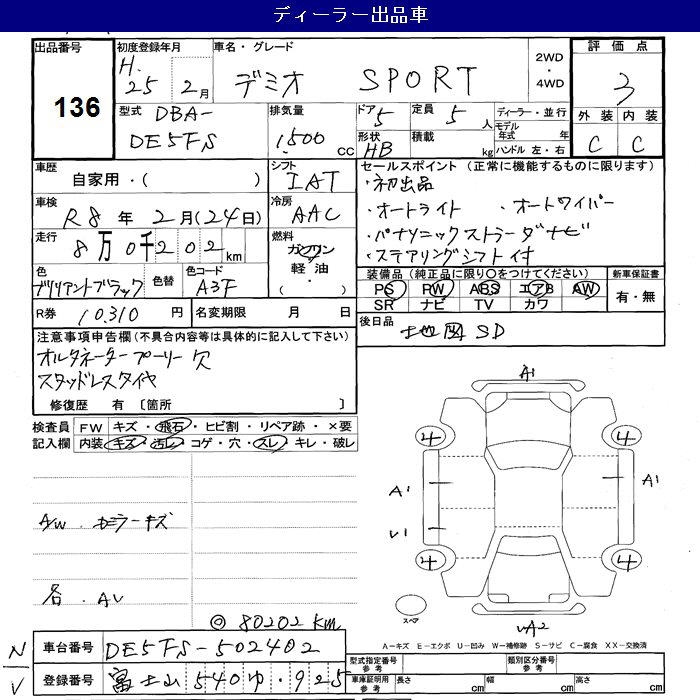 ディーラー出品車
出品番号 136
初度登録年月 H.25年2月
車名・グレード デミオ SPORT
2WD・4WD
評価点 3
外装 C 内装 C
型式 DBA-DE5FS
排気量 1,500cc
ドア 5
形状 HB
定員 5人
積載 kg
ディーラー・並行
モデル年式 年
ハンドル 左・右
車歴 自家用・( )
シフト IAT
セールスポイント(正常に機能するものに限ります)
・初出品
・オートライト ・オートワイパー
・パナソニックストラーダナビ
・ステアリングシフト付
車検 R8年2月(24日)
冷房 AAC
走行 8万0千202km
燃料 ガソリン 軽油・( )
色 ブリリアントブラック
色替
色コード A3F
装備品(純正品に限り○をつけてください)
PS PW ABS エアB AW
SR ナビ TV カワ
新車保証書 有・無
R券 10,310円
名変期限 月 日
後日品 地図SD
注意事項申告欄(不具合内容等は具体的に記入して下さい)
オルタネータープーリー欠
スタッドレスタイヤ
修復歴 有[箇所 ]
検査員記入欄
FW キズ・飛石・ヒビ割・リペア跡・×要
内装 キズ・汚レ・コゲ・穴・スレ・キレ・破レ
A1
4 4
A1 A1
V1
4 4
スペア
A2
A/W カミラーキズ
各 AV
◎80202km
A=キズ E=エクボ U=凹み W=補修跡 S=サビ C=腐食 XX=交換済
N/V
車台番号 DE5FS-502402
登録番号 富士山540ゆ・925
型式指定番号 参考
類別区分番号 参考
車庫証明用 参考 長さ cm 幅 cm 高さ cm